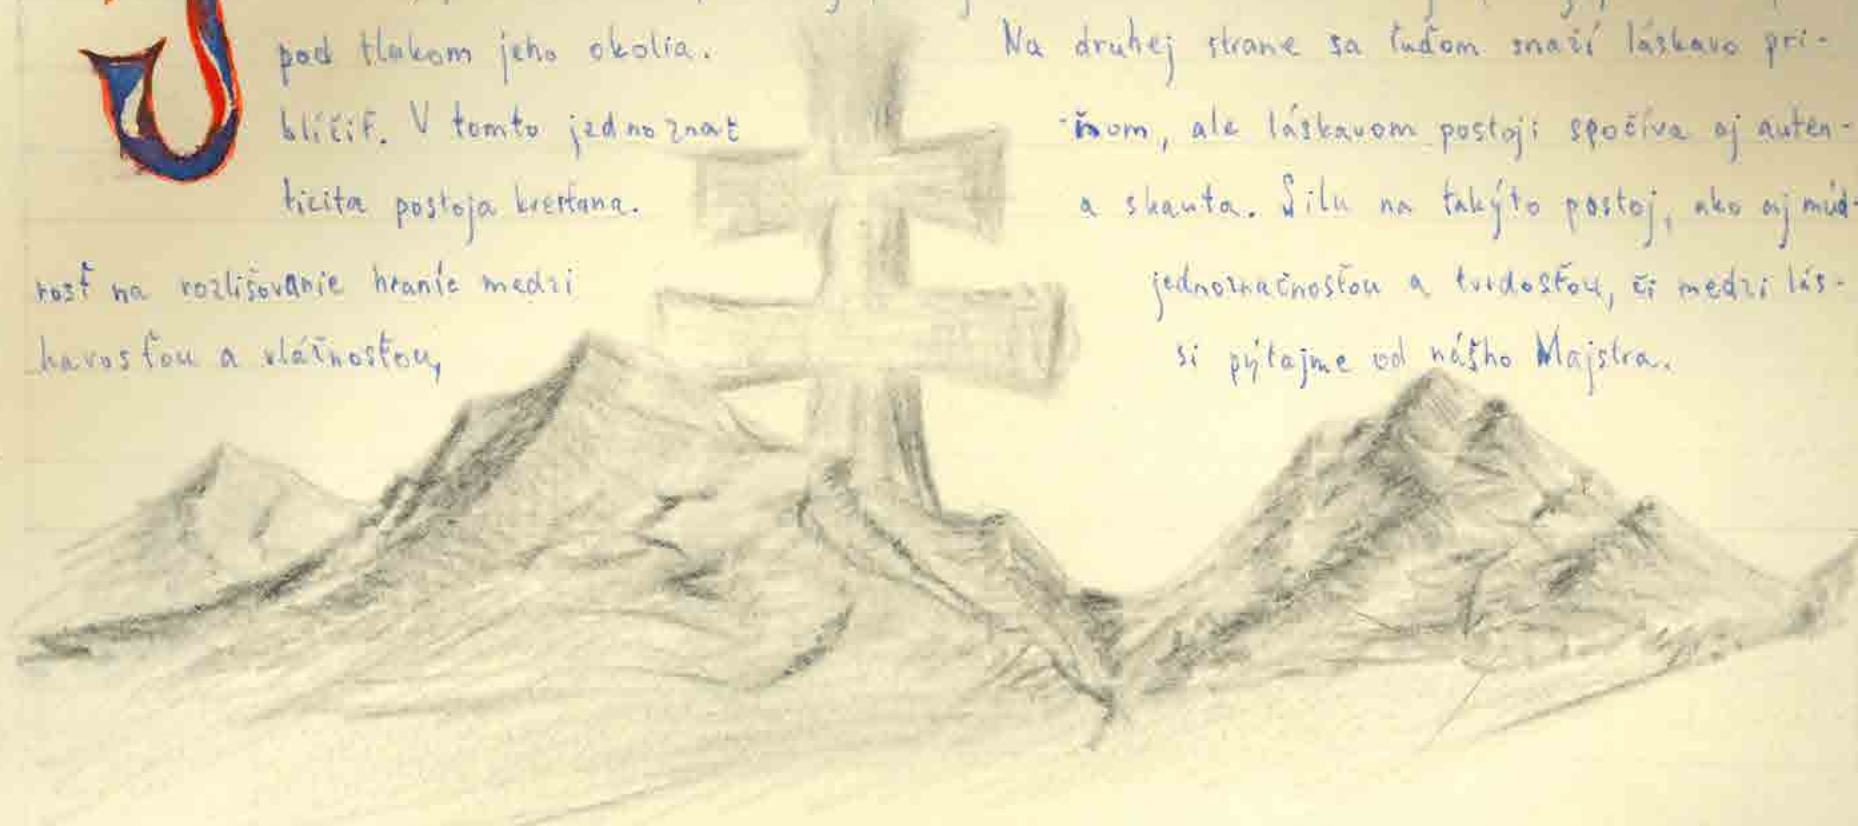 pod tlakom jeho okolia. Na druhej strane sa ľuďom snaží láskavo pri-
blíčiť. V tomto jednoznač -nom, ale láskavom postoji spočíva aj auten-
ticita postoja kresťana. a skauta. Silu na takýto postoj, ako aj múd-
rosť na rozlišovanie hraníc medzi jednoznačnosťou a tvrdosťou, či medzi lás-
kavosťou a vlažnosťou, si pýtajme od nášho Majstra.